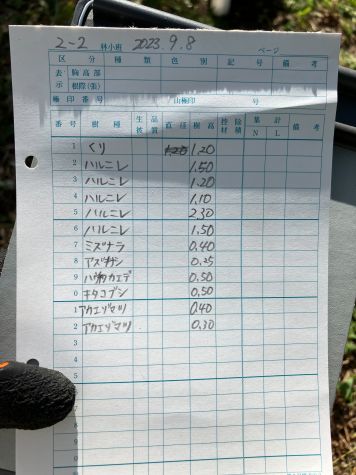 2-2 林小班 2023.9.8 ページ
区分 種類 色別 記号 備考
表示 胸高部
根際(張)
極印番号 山極印 号
番号 樹種 生被 品質 直径 樹高 控除材積 累計 N L 備考
1 くり 1.20
2 ハルニレ 1.50
3 ハルニレ 1.20
4 ハルニレ 1.10
5 ハルニレ 2.30
6 ハルニレ 1.50
7 ミズナラ 0.40
8 アズキナシ 0.25
9 カエデ 0.50
0 キタコブシ 0.50
1 アカエゾマツ 0.40
2 アカエゾマツ 0.30
3
4
5
7
8
9
0